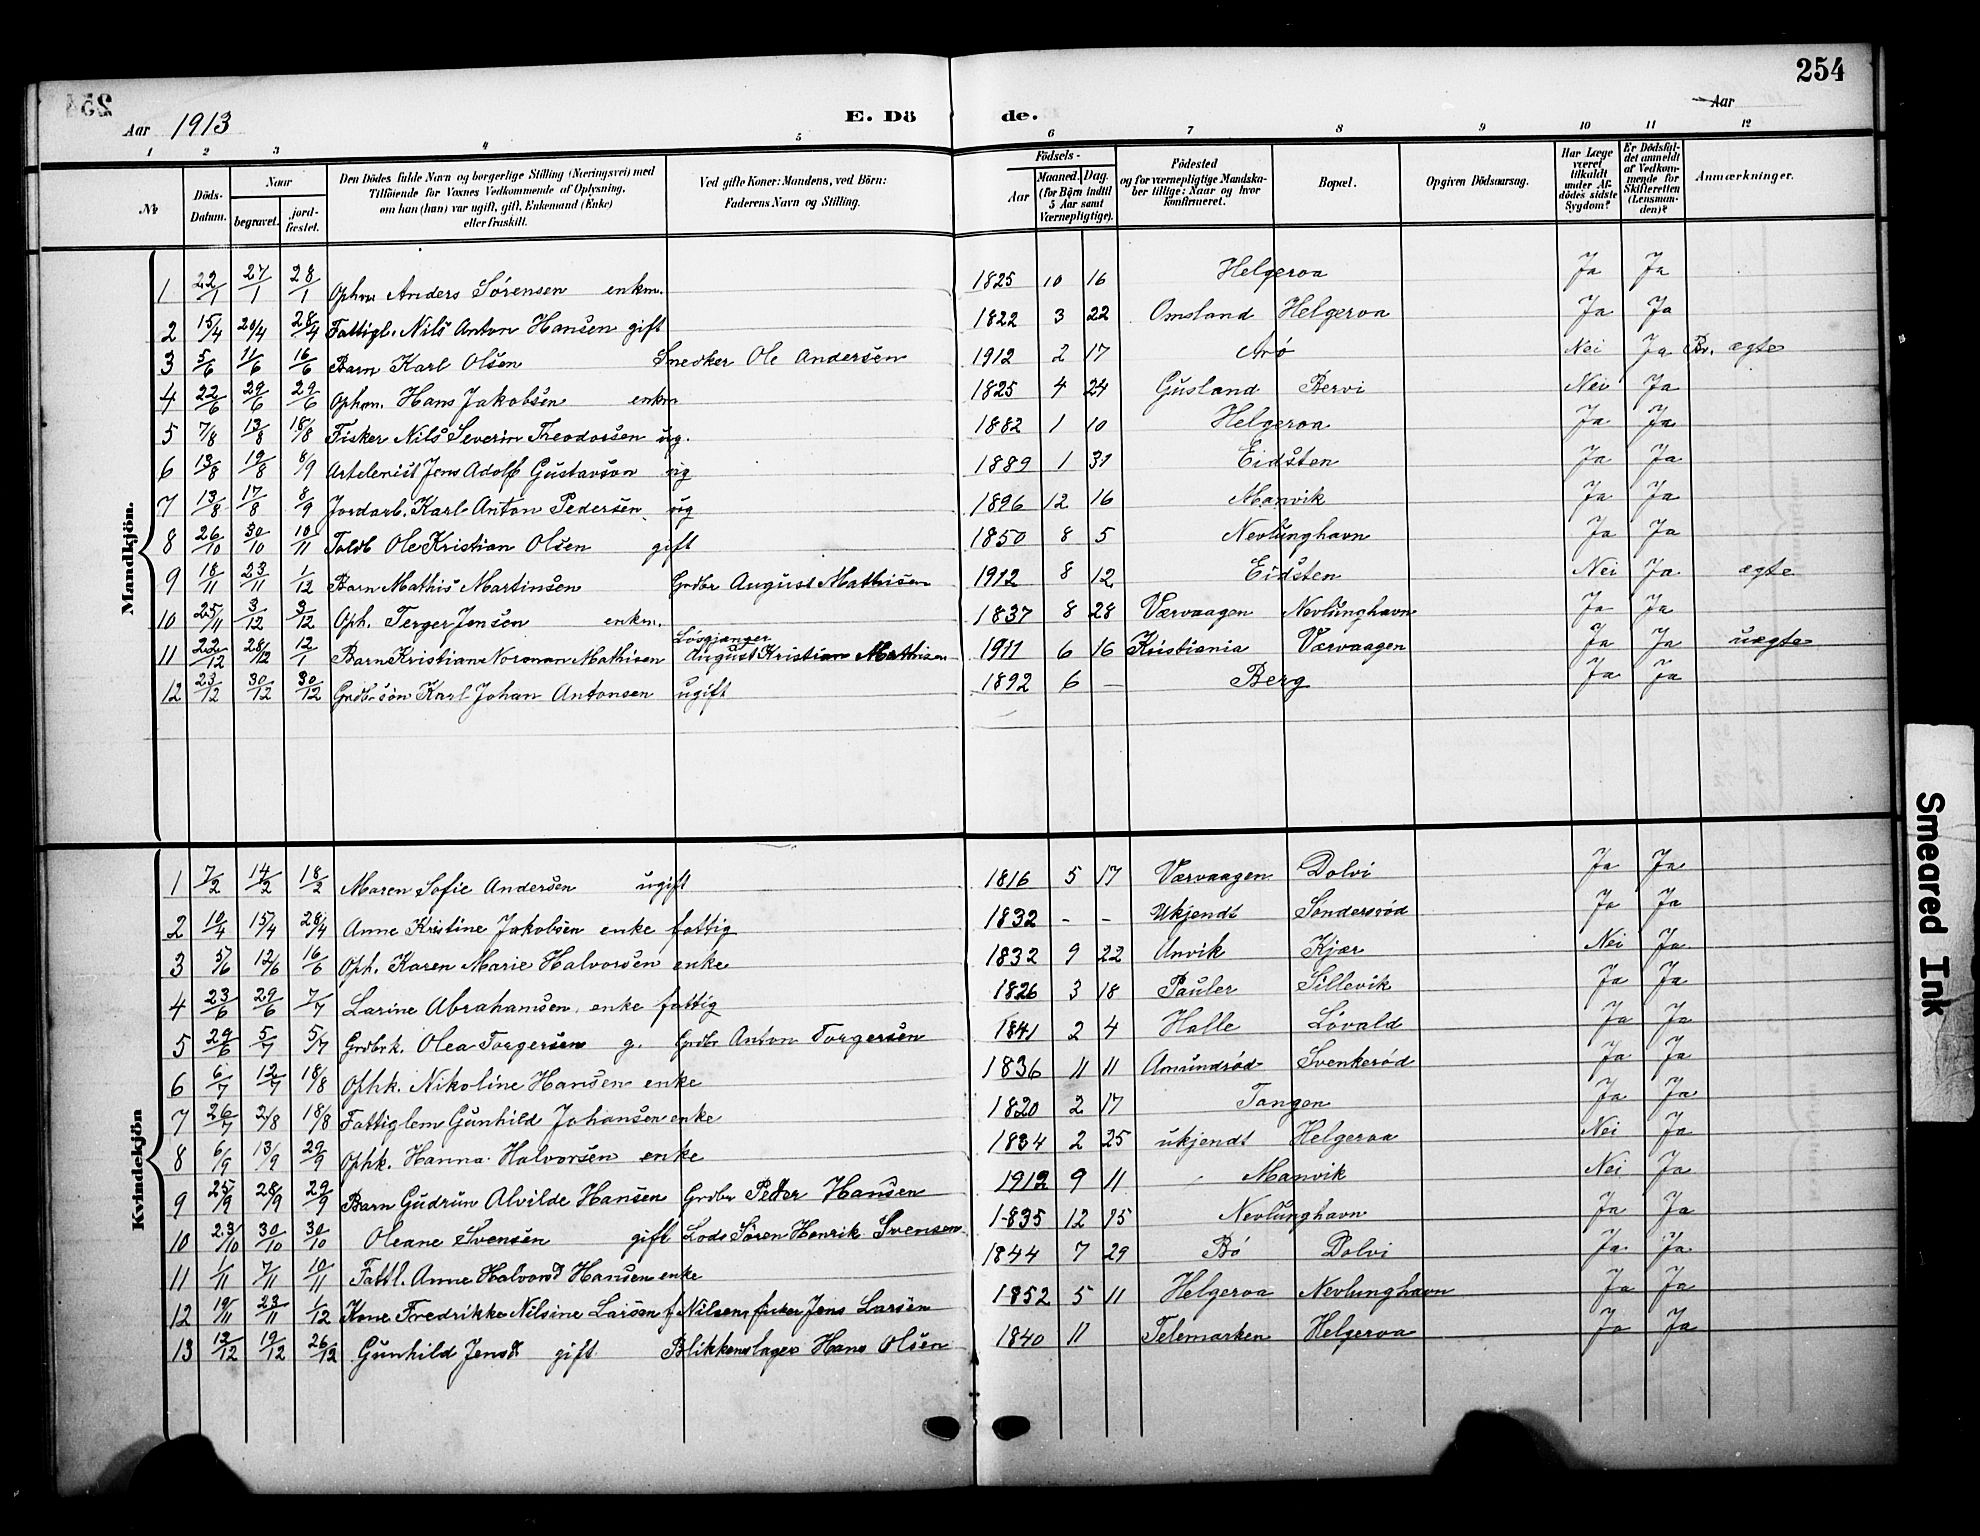 254
Aar 1913 E. Döde. Aar
1 2 3 4 5 6 7 8 9 10 11 12
№ Döds-Datum. Naar begravet. jordfæstet. Den Dödes fulde Navn og borgerlige Stilling (Næringsvei) med Tilföiende for Voxnes Vedkommende af Oplysning, om han (hun) var ugift, gift, Enkemand (Enke) eller fraskilt. Ved gifte Koner: Mandens, ved Börn: Faderens Navn og Stilling. Födsels- Aar Maaned. Dag. (for Börn indtil 5 Aar samt Værnepligtige). Födested og for værnepligtige Mandskaber tillige: Naar og hvor konfirmeret. Bopæl. Opgiven Dödsaarsag. Har Læge været tilkaldt under Afdödes sidste Sygdom? Er Dödsfaldet anmeldt af Vedkommende for Skifteretten (Lensmanden)? Anmærkninger.
Mandkjön.
1 22/1 27/1 28/1 Ophm Anders Sörensen enkm. 1825 10 16 Helgeroa Ja Ja
2 15/4 20/4 28/4 Fattigl. Nils Anton Hansen gift 1822 3 22 Omsland Helgeroa Ja Ja
3 5/6 11/6 16/6 Barn Karl Olsen Snedker Ole Andersen 1912 2 17 Arö Nei Ja ægte
4 22/6 29/6 29/6 Ophm. Hans Jakobsen enkm 1825 4 24 Gusland Bervi Nei Ja
5 7/8 13/8 18/8 Fisker Nils Severin Theodorsen ug. 1882 1 10 Helgeroa Ja Ja
6 13/8 19/8 8/9 Artelerist Jens Adolf Gustavson ug 1889 1 31 Eidsten Ja Ja
7 13/8 17/8 8/9 Jordarb. Karl Anton Pedersen ug 1896 12 16 Manvik Ja Ja
8 26/10 30/10 10/11 Toldb Ole Kristian Olsen gift 1850 8 5 Nevlunghavn Ja Ja
9 18/11 23/11 1/12 Barn Mathis Martinsen Grdbr August Mathisen 1912 8 12 Eidsten Nei Ja ægte
10 25/11 3/12 3/12 Oph. Terger Jensen enkm. 1837 8 28 Værvaagen Nevlunghavn Ja Ja
11 22/12 28/12 12/1 Barn Kristian Norman Mathisen Lösgjænger August Kristian Mathisen 1911 6 16 Kristiania Værvaagen Ja Ja uægte
12 23/12 30/12 30/12 Grdbr sön Karl Johan Antonsen ugift 1892 6 – Berg Ja Ja
Kvindekjön
1 7/2 14/2 18/2 Maren Sofie Andersen ugift 1816 5 17 Værvaagen Dolvi Ja Ja
2 10/4 15/4 28/4 Anne Kristine Jakobsen enke fattig 1832 - - Ukjendt Sondersröd Ja Ja
3 5/6 12/6 16/6 Oph. Karen Marie Halvorsen enke 1832 9 22 Anvik Kjær Nei Ja
4 23/6 29/6 7/7 Larine Abrahamsen, enke fattig 1826 3 18 Pauler Sillevik Ja Ja
5 29/6 5/7 5/7 Grdbrk. Olea Torgersen g. Grdbr Anton Torgersen 1841 2 4 Halle Lövald Ja Ja
6 6/7 12/7 18/8 Ophk. Nikoline Hansen enke 1836 11 11 Amundröd Svenkeröd Ja Ja
7 26/7 2/8 18/8 Fattiglem Gunhild Johansen enke 1820 2 17 Tangen Ja Ja
8 6/9 13/9 29/9 Ophk. Hanna Halvorsen enke 1834 2 25 ukjendt Helgeroa Nei Ja
9 25/9 28/9 29/9 Barn Gudrun Alvilde Hansen Grdbr Peder Hansen 1912 9 11 Manvik Nei Ja
10 23/10 30/10 30/10 Oleane Svensen gift Lods Sören Henrik Svensen 1835 12 15 Nevlunghavn Ja Ja
11 1/11 7/11 10/11 Fattl. Anne Halvorsd Hansen enke 1844 7 29 Bö Dolvi Ja Ja
12 19/11 23/11 1/12 Kone Fredrikke Nilsine Larsen f Nilsen, fisker Jens Larsen 1852 5 11 Helgeroa Nevlunghavn Ja Ja
13 13/12 19/12 26/12 Gunhild Jensd. gift Blikkenslager Hans Olsen 1840 11 Telemarken Helgeroa Ja Ja
Smeared Ink